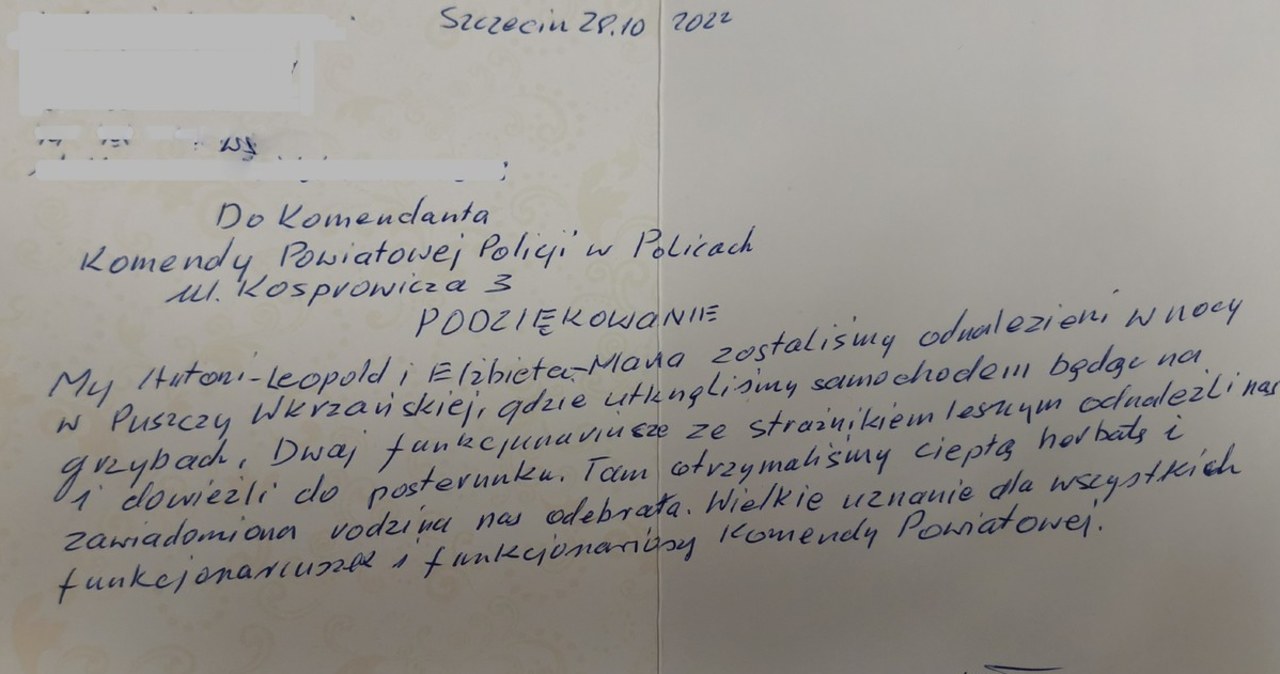 Szczecin 28.10 2022
Do Komendanta
Komendy Powiatowej Policji w Policach
ul. Kosprowicza 3
PODZIĘKOWANIE
My Antoni-Leopold i Elżbieta-Maria zostaliśmy odnalezieni w nocy
w Puszczy Wkrzańskiej, gdzie utknęliśmy samochodem będąc na
grzybach. Dwaj funkcjonariusze ze strażnikiem leśnym odnaleźli nas
i dowieźli do posterunku. Tam otrzymaliśmy ciepłą herbatę i
zawiadomiona rodzina nas odebrała. Wielkie uznanie dla wszystkich
funkcjonariuszek i funkcjonariuszy Komendy Powiatowej.